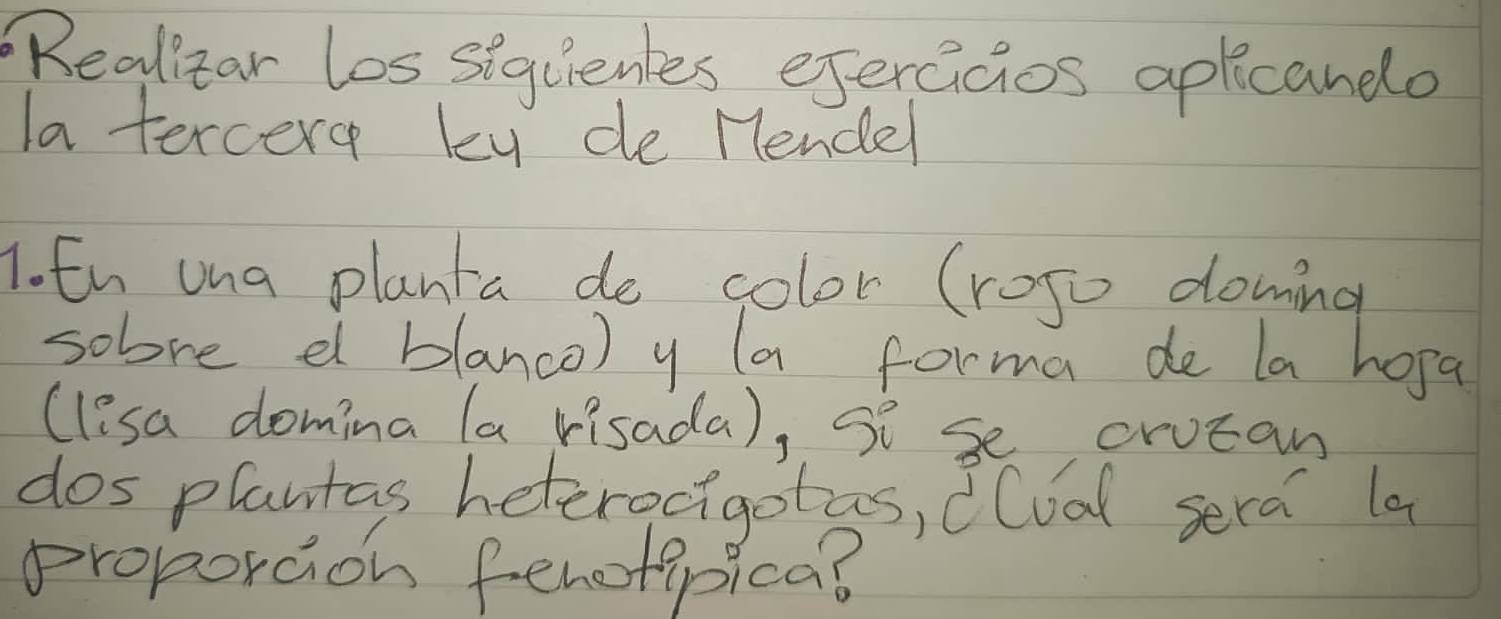 • Realizar los siguientes ejercicios aplicando
la tercera ley de Mendel
1. En una planta de color (rojo domina
sobre el blanco) y la forma de la hoja
(lisa domina la risada), si se cruzan
dos plantas heterocigotas, ¿Cúal será la
proporción fenotípica?